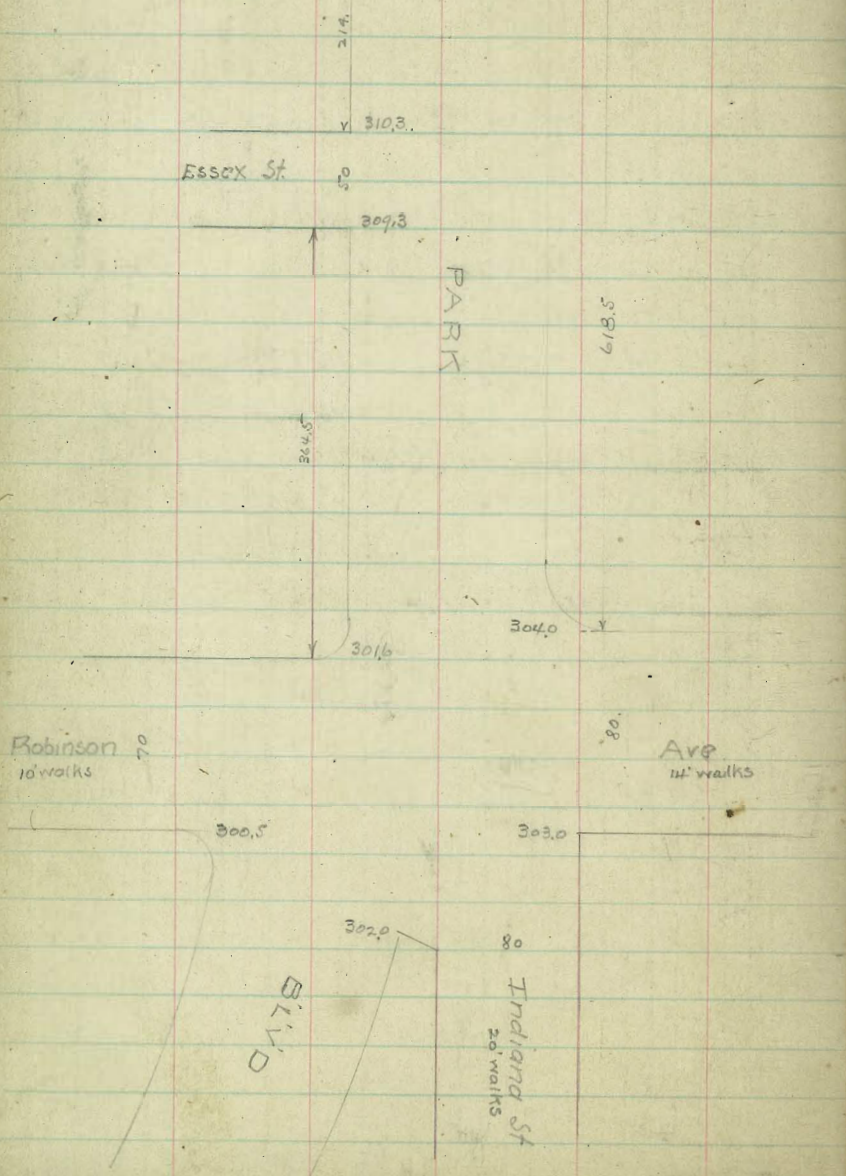 214.
310.3.
Essex St.
50
309.3
PARK
618.5
364.5
304.0
301.6
80.
Robinson
70
Ave
10' walks
14' walks
300.5
303.0
302.0
80
BL'V'D
Indiana St
20' walks